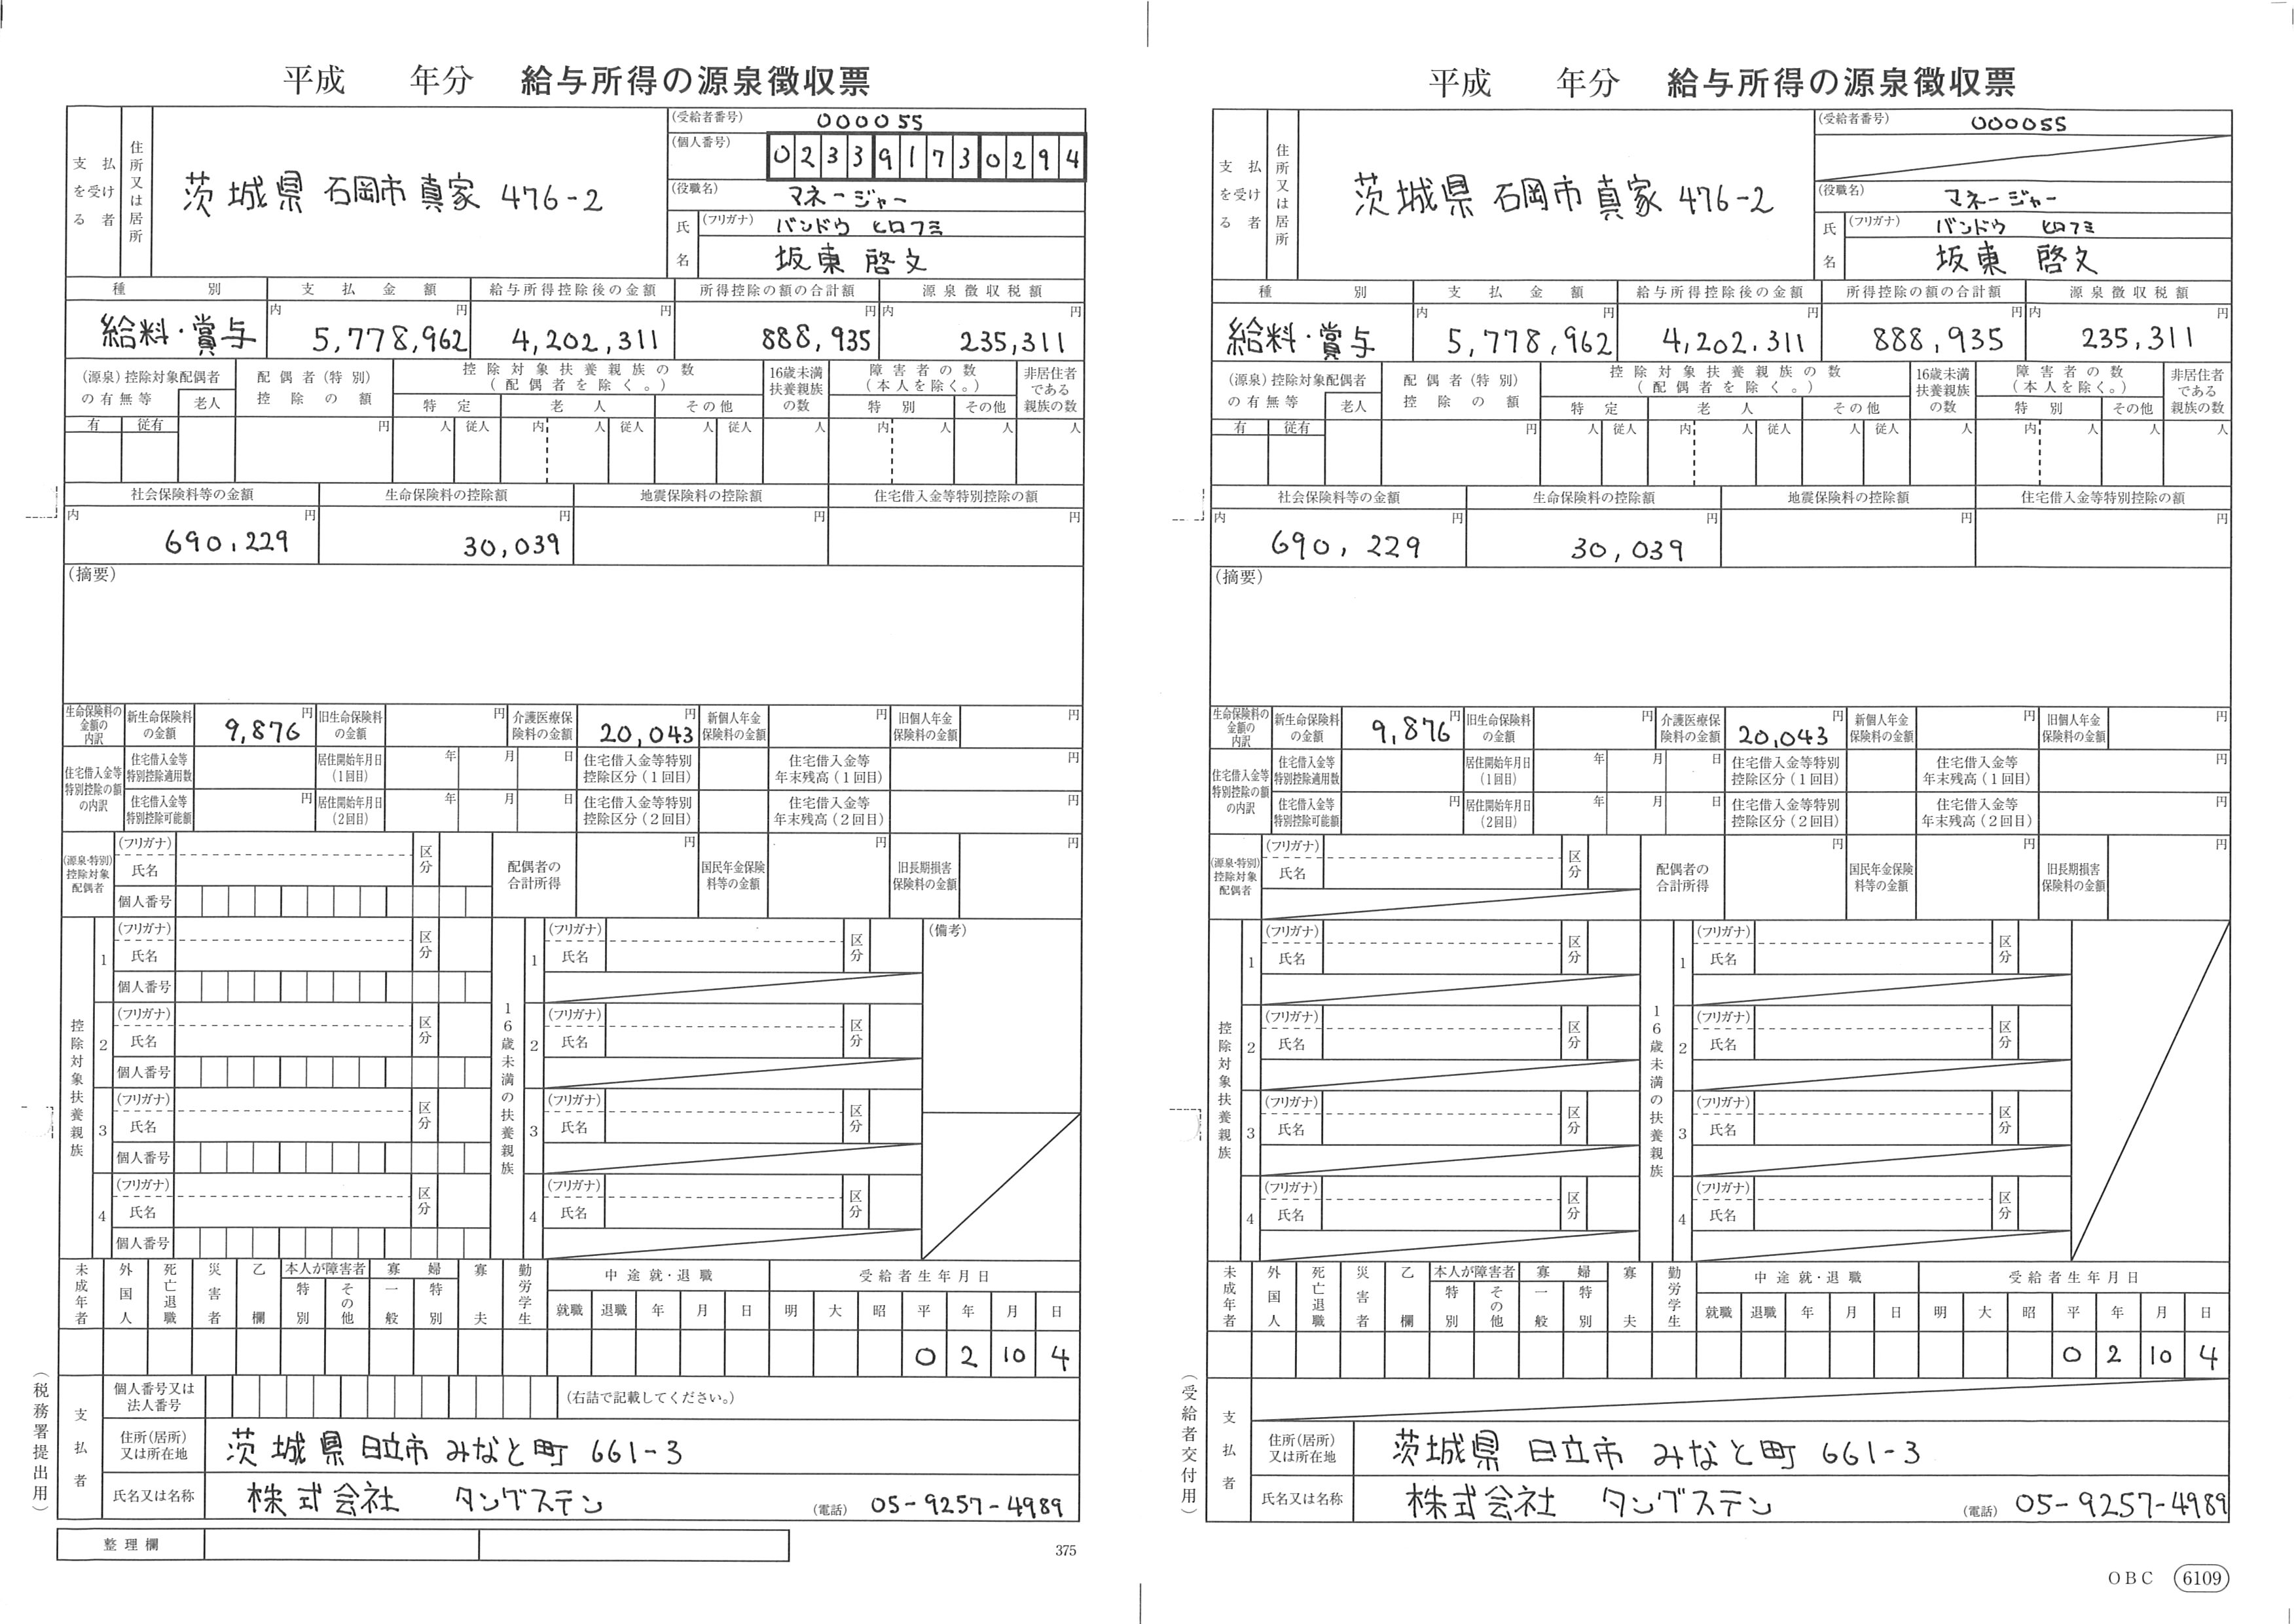 平成 年分 給与所得の源泉徴収票
支払を受ける者
住所又は居所
茨城県 石岡市 真家 476-2
(受給者番号) 000055
(個人番号) 023391730294
(役職名) マネージャー
氏名
(フリガナ) バンドウ ヒロフミ
坂東 啓文
種別 支払金額 給与所得控除後の金額 所得控除の額の合計額 源泉徴収税額
内 円 円 円 内 円
給料・賞与 5,778,962 4,202,311 888,935 235,311
(源泉)控除対象配偶者の有無等 老人 配偶者(特別)控除の額 控除対象扶養親族の数(配偶者を除く。) 16歳未満扶養親族の数 障害者の数(本人を除く。) 非居住者である親族の数
特定 老人 その他 特別 その他
有 従有 円 人 従人 内 人 従人 人 従人 人 内 人 人 人
社会保険料等の金額 生命保険料の控除額 地震保険料の控除額 住宅借入金等特別控除の額
内 円 円 円 円
690,229 30,039
(摘要)
生命保険料の金額の内訳 新生命保険料の金額 9,876 円 旧生命保険料の金額 円 介護医療保険料の金額 20,043 円 新個人年金保険料の金額 円 旧個人年金保険料の金額 円
住宅借入金等特別控除の額の内訳 住宅借入金等特別控除適用数 居住開始年月日(1回目) 年 月 日 住宅借入金等特別控除区分(1回目) 住宅借入金等年末残高(1回目) 円
住宅借入金等特別控除可能額 円 居住開始年月日(2回目) 年 月 日 住宅借入金等特別控除区分(2回目) 住宅借入金等年末残高(2回目) 円
(源泉・特別)控除対象配偶者 (フリガナ) 氏名 区分 個人番号 配偶者の合計所得 円 国民年金保険料等の金額 円 旧長期損害保険料の金額 円
控除対象扶養親族 16歳未満の扶養親族
1 (フリガナ) 氏名 区分 個人番号 1 (フリガナ) 氏名 区分 (備考)
2 (フリガナ) 氏名 区分 個人番号 2 (フリガナ) 氏名 区分
3 (フリガナ) 氏名 区分 個人番号 3 (フリガナ) 氏名 区分
4 (フリガナ) 氏名 区分 個人番号 4 (フリガナ) 氏名 区分
未成年者 外国人 死亡退職 災害者 乙欄 本人が障害者 特別 その他 寡婦 一般 特別 寡夫 勤労学生 中途就・退職 受給者生年月日
就職 退職 年 月 日 明 大 昭 平 年 月 日
0 2 10 4
(税務署提出用)
支払者
個人番号又は法人番号 (右詰で記載してください。)
住所(居所)又は所在地 茨城県 日立市 みなと町 661-3
氏名又は名称 株式会社 タングステン (電話) 05-9257-4989
整理欄
375
平成 年分 給与所得の源泉徴収票
支払を受ける者
住所又は居所
茨城県 石岡市 真家 476-2
(受給者番号) 000055
(役職名) マネージャー
氏名
(フリガナ) バンドウ ヒロフミ
坂東 啓文
種別 支払金額 給与所得控除後の金額 所得控除の額の合計額 源泉徴収税額
内 円 円 円 内 円
給料・賞与 5,778,962 4,202,311 888,935 235,311
(源泉)控除対象配偶者の有無等 老人 配偶者(特別)控除の額 控除対象扶養親族の数(配偶者を除く。) 16歳未満扶養親族の数 障害者の数(本人を除く。) 非居住者である親族の数
特定 老人 その他 特別 その他
有 従有 円 人 従人 内 人 従人 人 従人 人 内 人 人 人
社会保険料等の金額 生命保険料の控除額 地震保険料の控除額 住宅借入金等特別控除の額
内 円 円 円 円
690,229 30,039
(摘要)
生命保険料の金額の内訳 新生命保険料の金額 9,876 円 旧生命保険料の金額 円 介護医療保険料の金額 20,043 円 新個人年金保険料の金額 円 旧個人年金保険料の金額 円
住宅借入金等特別控除の額の内訳 住宅借入金等特別控除適用数 居住開始年月日(1回目) 年 月 日 住宅借入金等特別控除区分(1回目) 住宅借入金等年末残高(1回目) 円
住宅借入金等特別控除可能額 円 居住開始年月日(2回目) 年 月 日 住宅借入金等特別控除区分(2回目) 住宅借入金等年末残高(2回目) 円
(源泉・特別)控除対象配偶者 (フリガナ) 氏名 区分 配偶者の合計所得 円 国民年金保険料等の金額 円 旧長期損害保険料の金額 円
控除対象扶養親族 16歳未満の扶養親族
1 (フリガナ) 氏名 区分 1 (フリガナ) 氏名 区分
2 (フリガナ) 氏名 区分 2 (フリガナ) 氏名 区分
3 (フリガナ) 氏名 区分 3 (フリガナ) 氏名 区分
4 (フリガナ) 氏名 区分 4 (フリガナ) 氏名 区分
未成年者 外国人 死亡退職 災害者 乙欄 本人が障害者 特別 その他 寡婦 一般 特別 寡夫 勤労学生 中途就・退職 受給者生年月日
就職 退職 年 月 日 明 大 昭 平 年 月 日
0 2 10 4
(受給者交付用)
支払者
住所(居所)又は所在地 茨城県 日立市 みなと町 661-3
氏名又は名称 株式会社 タングステン (電話) 05-9257-4989
OBC 6109